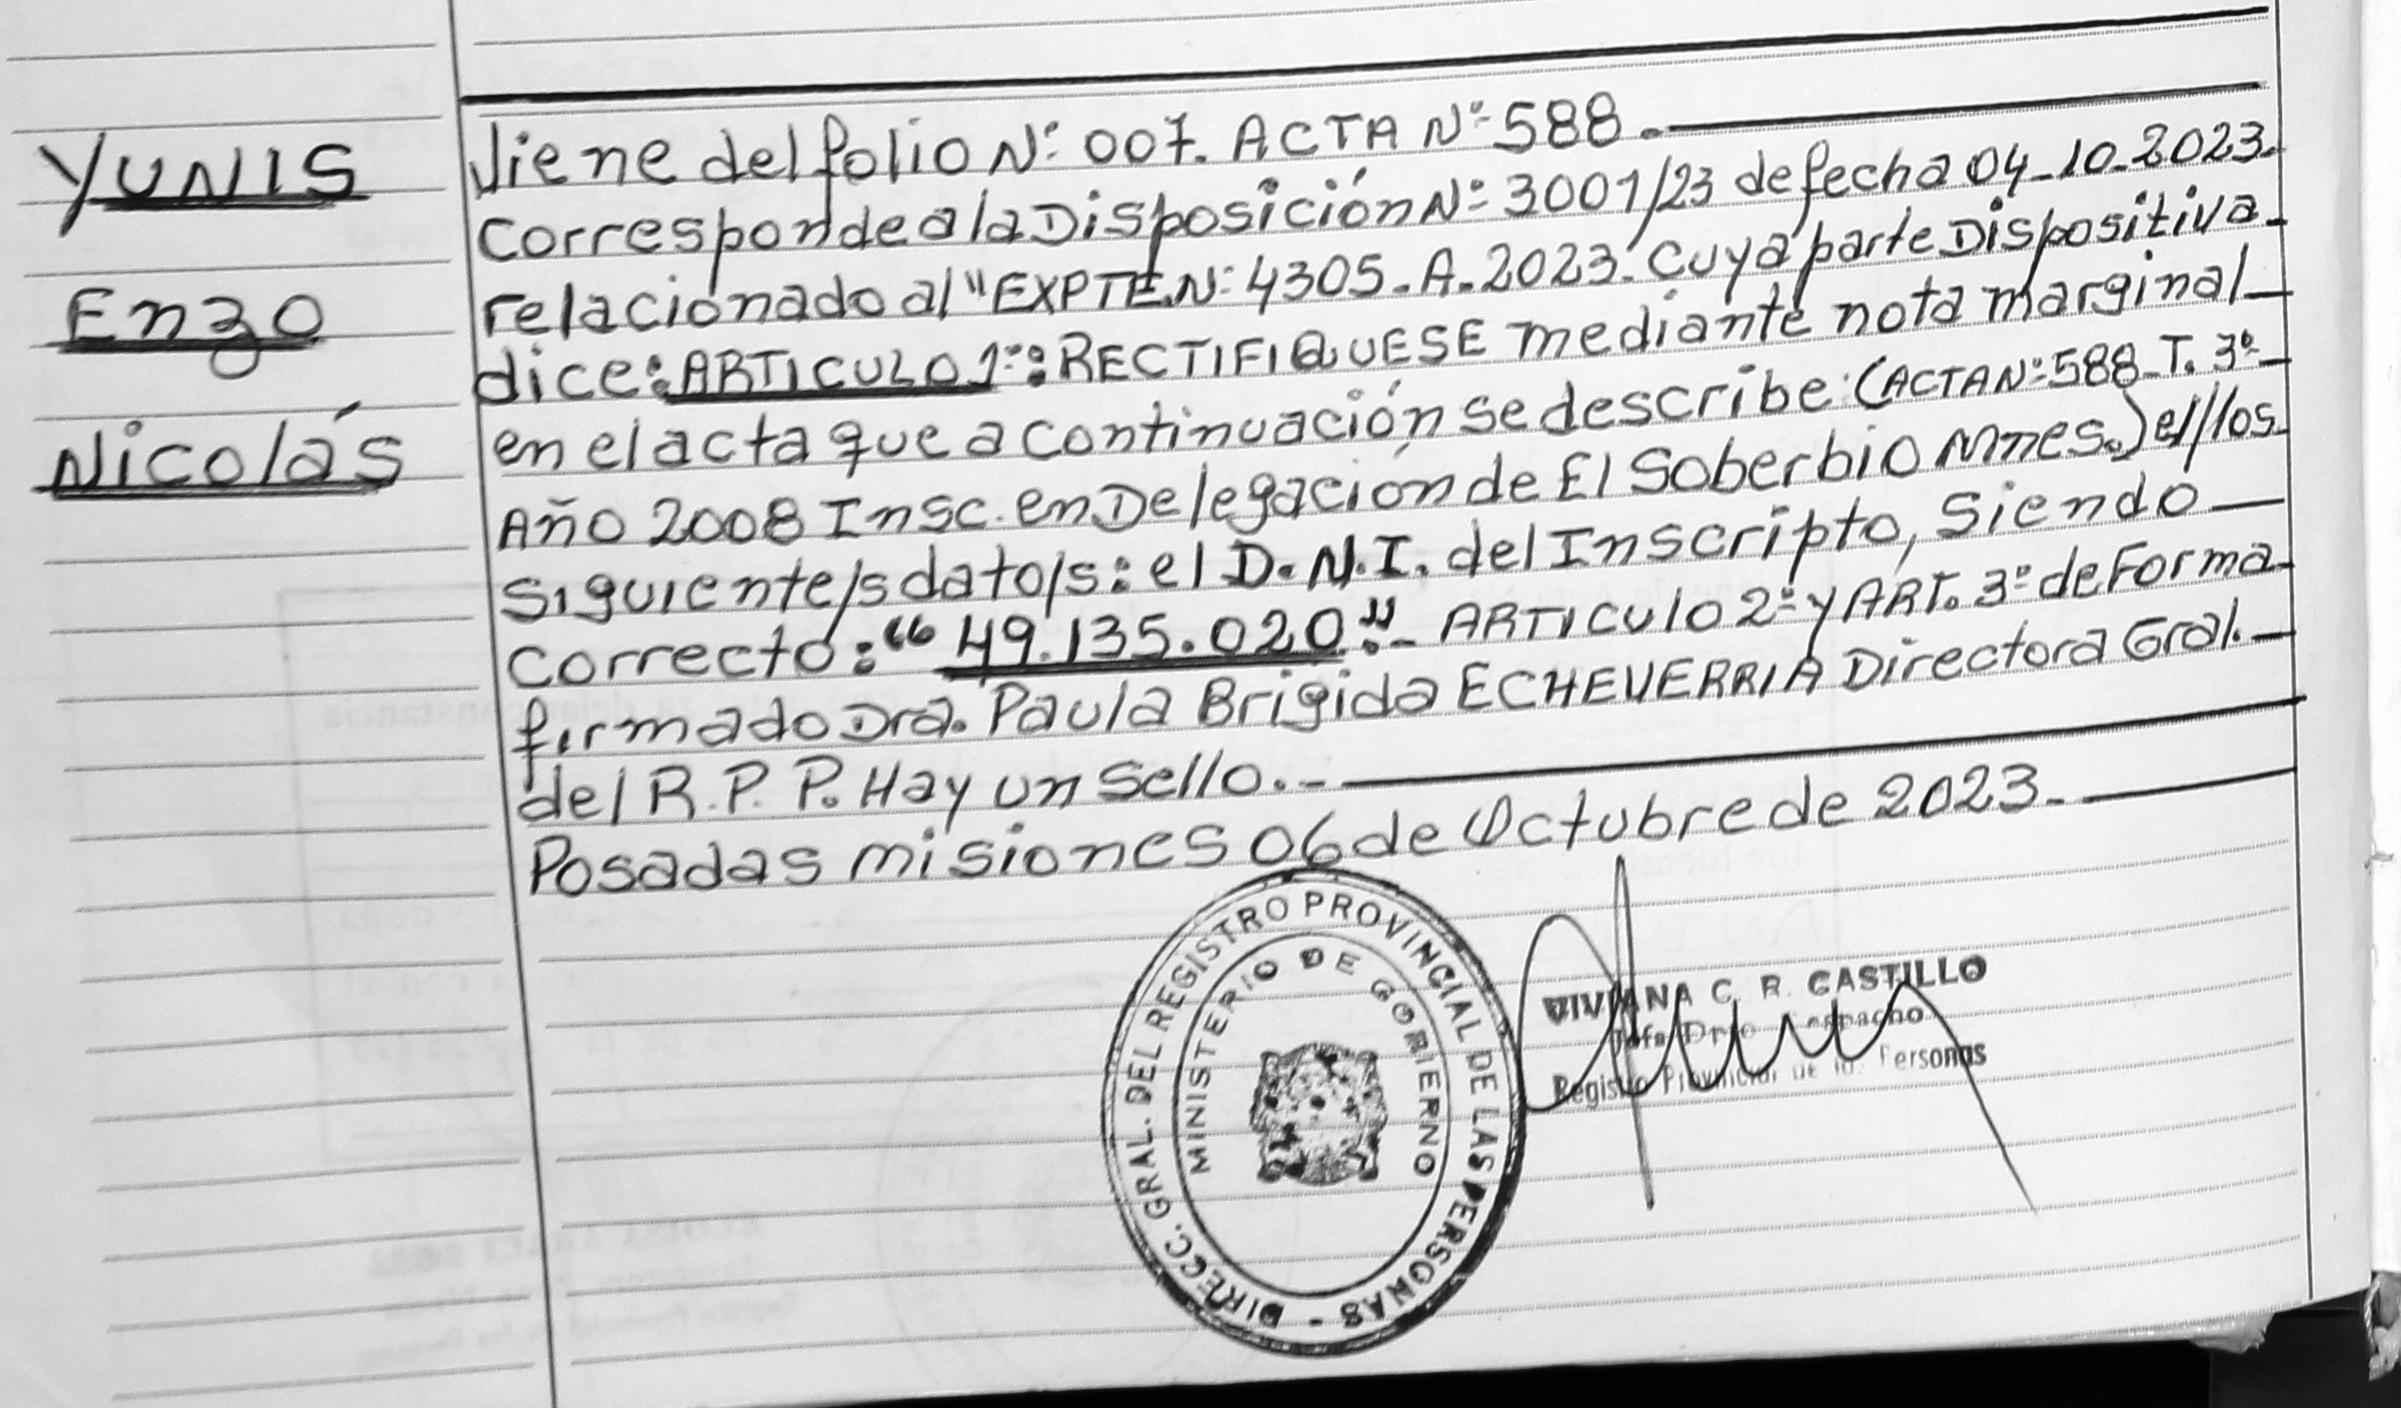 YUNIS
Enzo
Nicolás
Viene del folio Nº: 007. ACTA Nº 588.-
Corresponde a la Disposición Nº: 3001/23 de fecha 04-10-2023.
relacionado al "EXPTE.Nº: 4305-A-2023. Cuya parte Dispositiva
dice: ARTICULO 1º: RECTIFIQUESE mediante nota marginal
en el acta que a continuación se describe: (ACTA Nº: 588 T. 3º
Año 2008 Insc. en Delegación de El Soberbio Mnes.) el/los
siguiente/s dato/s: el D.N.I. del Inscripto, Siendo
correcto: "49.135.020".- ARTICULO 2º y ART. 3º de Forma
firmado Dra. Paula Brigida ECHEVERRIA Directora Gral.
del R.P.P. Hay un Sello.-
Posadas misiones 06 de Octubre de 2023.-
DIRECC. GRAL. DEL REGISTRO PROVINCIAL DE LAS PERSONAS -
MINISTERIO DE GOBIERNO
VIVIANA C. R. CASTILLO
Jefa Dpto. Despacho
Registro Provincial de las Personas